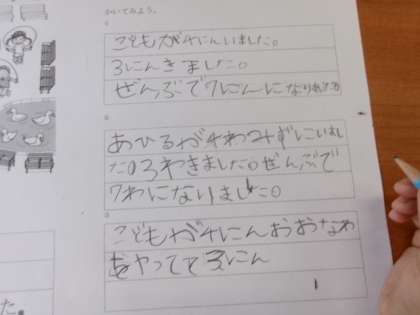 かいてみよう。
こどもが4にんいました。
3にんきました。
ぜんぶで7にんになりました
あひるが4わみずにいまし
た。3わきました。ぜんぶで
7わになりました。
こどもが4にんおおなわ
をやってて3にん
た。